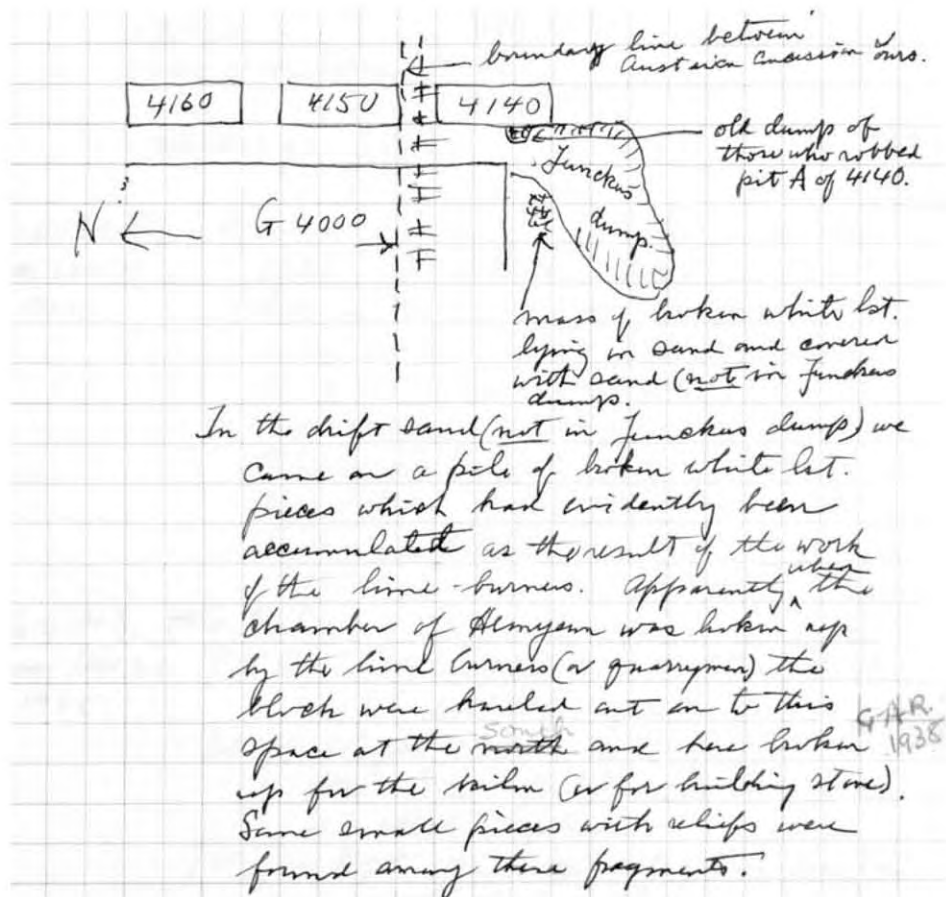 boundary line between
Austrian concession & ours.
4160 4150 4140
old dump of
those who robbed
pit A of 4140.
Junckers
dump.
N
G 4000
mass of broken white lst.
lying in sand and covered
with sand (not in Junckers
dump.
In the drift sand (not in Junckers dump) we
came on a pile of broken white lst.
pieces which had evidently been
accumulated as the result of the work
of the lime-burners. Apparently when the
chamber of Hemyewn was broken up
by the lime burners (or quarrymen) the
block were hauled out on to this
space at the north South and here broken
up for the kiln (or for building stone).
Some small pieces with reliefs were
found among these fragments.
G.A.R.
1938